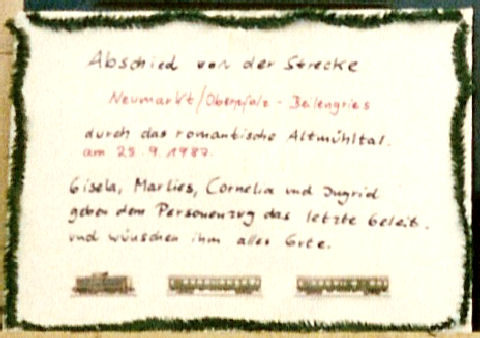 Abschied von der Strecke
Neumarkt/Oberpfalz - Beilengries
durch das romantische Altmühltal.
am 23.9.1987.
Gisela, Marlies, Cornelia und Ingrid
geben dem Personenzug das letzte Geleit.
und wünschen ihm alles Gute.